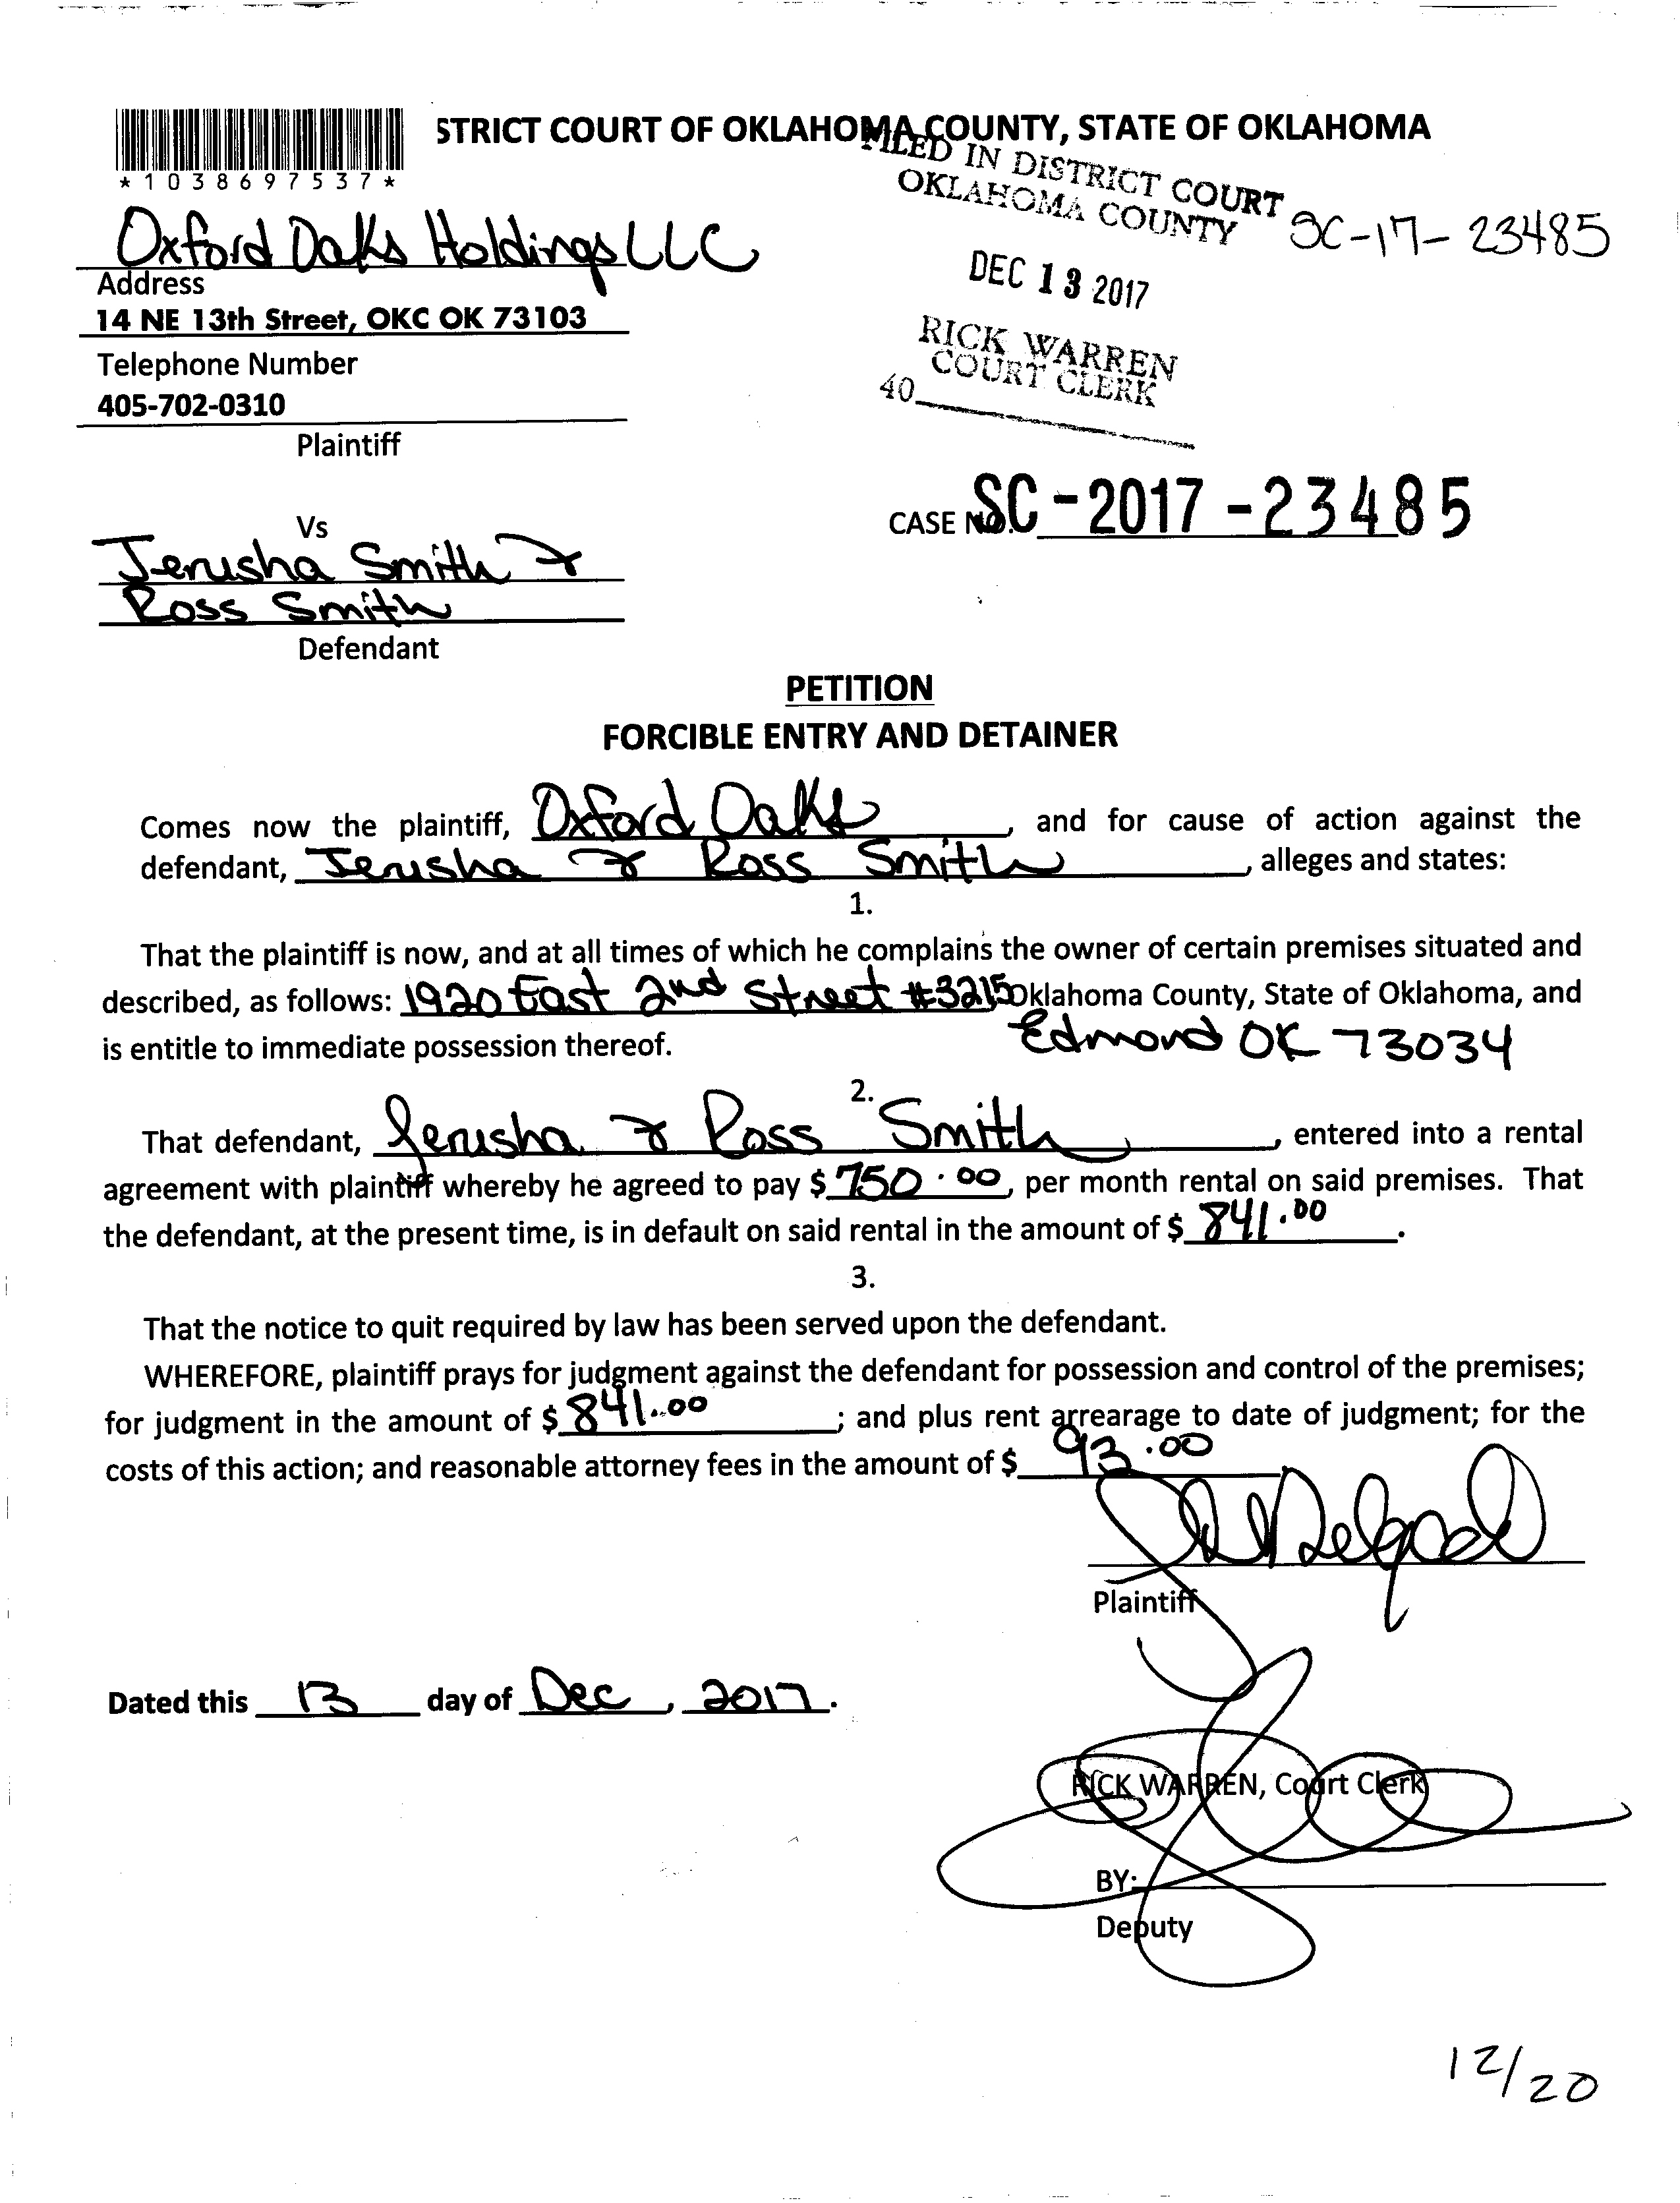 STRICT COURT OF OKLAHOMA COUNTY, STATE OF OKLAHOMA
*1038697537*
FILED IN DISTRICT COURT
OKLAHOMA COUNTY
SC-17-23485
Oxford Oaks Holdings LLC
Address
DEC 13 2017
14 NE 13th Street, OKC OK 73103
Telephone Number
RICK WARREN
COURT CLERK
405-702-0310
40
Plaintiff
CASE NO. SC-2017-23485
Vs
Jerusha Smith &
Ross Smith
Defendant
PETITION
FORCIBLE ENTRY AND DETAINER
Comes now the plaintiff, Oxford Oaks, and for cause of action against the
defendant, Jerusha & Ross Smith, alleges and states:
1.
That the plaintiff is now, and at all times of which he complains the owner of certain premises situated and
described, as follows: 1920 East 2nd Street #3215 Oklahoma County, State of Oklahoma, and
is entitle to immediate possession thereof. Edmond OK 73034
2.
That defendant, Jerusha & Ross Smith, entered into a rental
agreement with plaintiff whereby he agreed to pay $ 750.00, per month rental on said premises. That
the defendant, at the present time, is in default on said rental in the amount of $ 841.00.
3.
That the notice to quit required by law has been served upon the defendant.
WHEREFORE, plaintiff prays for judgment against the defendant for possession and control of the premises;
for judgment in the amount of $ 841.00; and plus rent arrearage to date of judgment; for the
costs of this action; and reasonable attorney fees in the amount of $ 93.00
Plaintiff
Dated this 13 day of Dec, 2017.
RICK WARREN, Court Clerk
BY:
Deputy
12/20